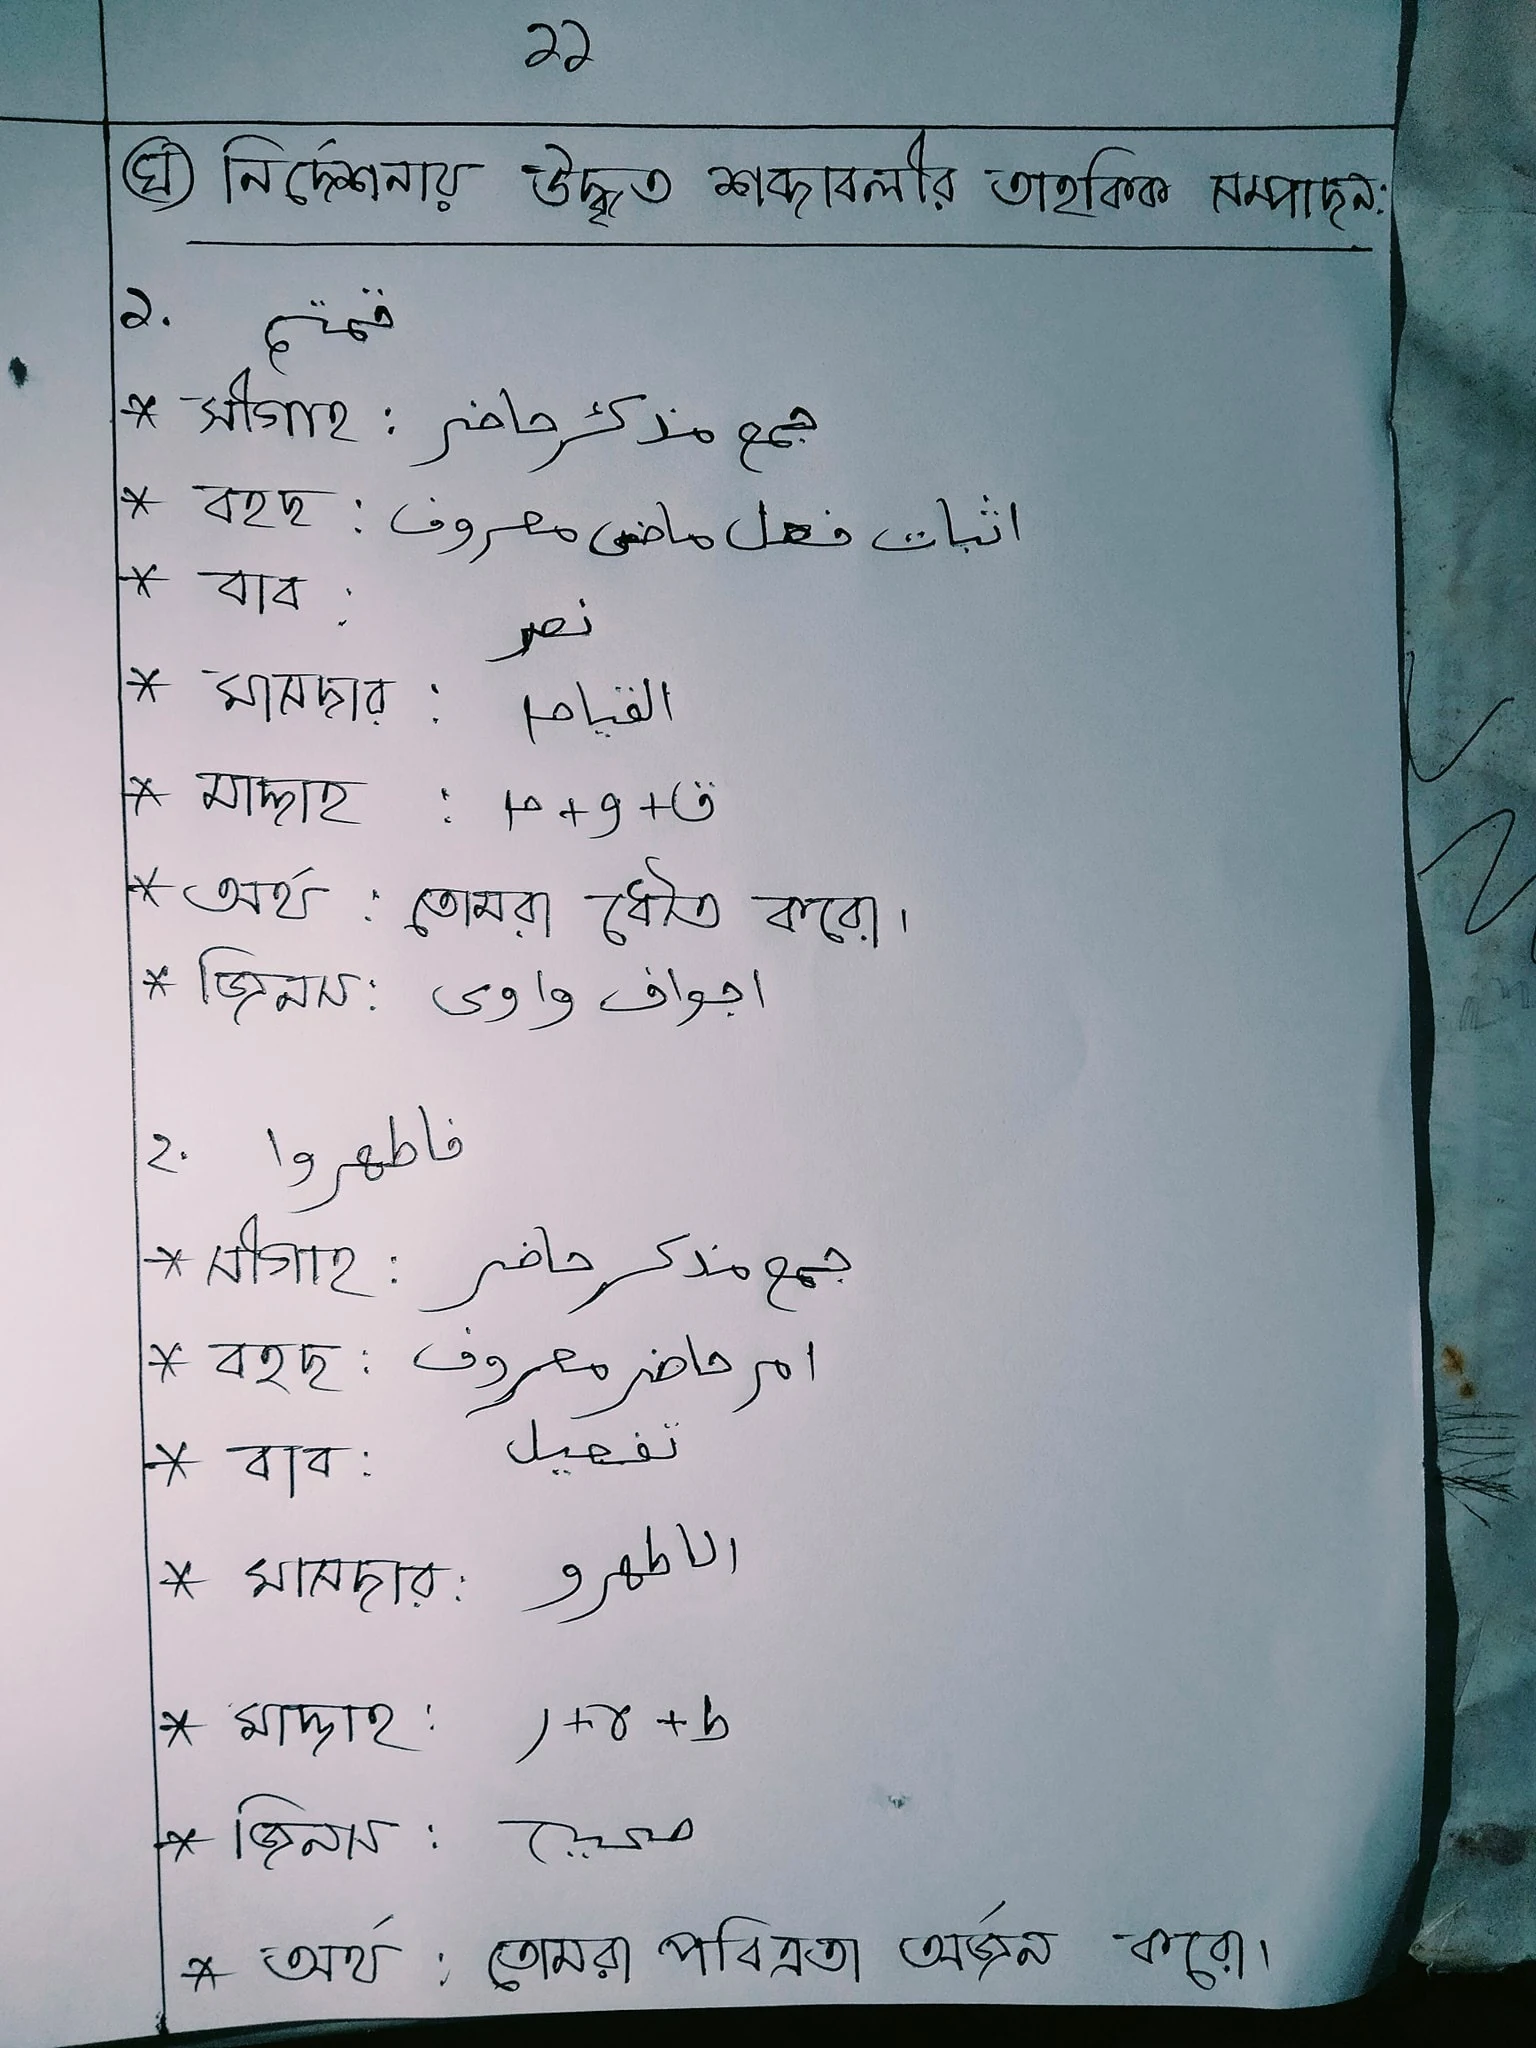 ১১
ঘ) নির্দেশনায় উদ্ধৃত শব্দাবলীর তাহকিক সম্পাদন:
১. قمتم
* সীগাহ : جمع مذكر حاضر
* বহছ : اثبات فعل ماضى معروف
* বাব : نصر
* মাসদার : القيام
* মাদ্দাহ : ق+و+م
* অর্থ : তোমরা ধৌত করো।
* জিনস: اجواف واوى
২. فاطهروا
* সীগাহ : جمع مذكر حاضر
* বহছ : امر حاضر معروف
* বাব : تفعيل
* মাসদার : الاطهرو
* মাদ্দাহ : ط+ه+ر
* জিনস : صحيح
* অর্থ : তোমরা পবিত্রতা অর্জন করো।